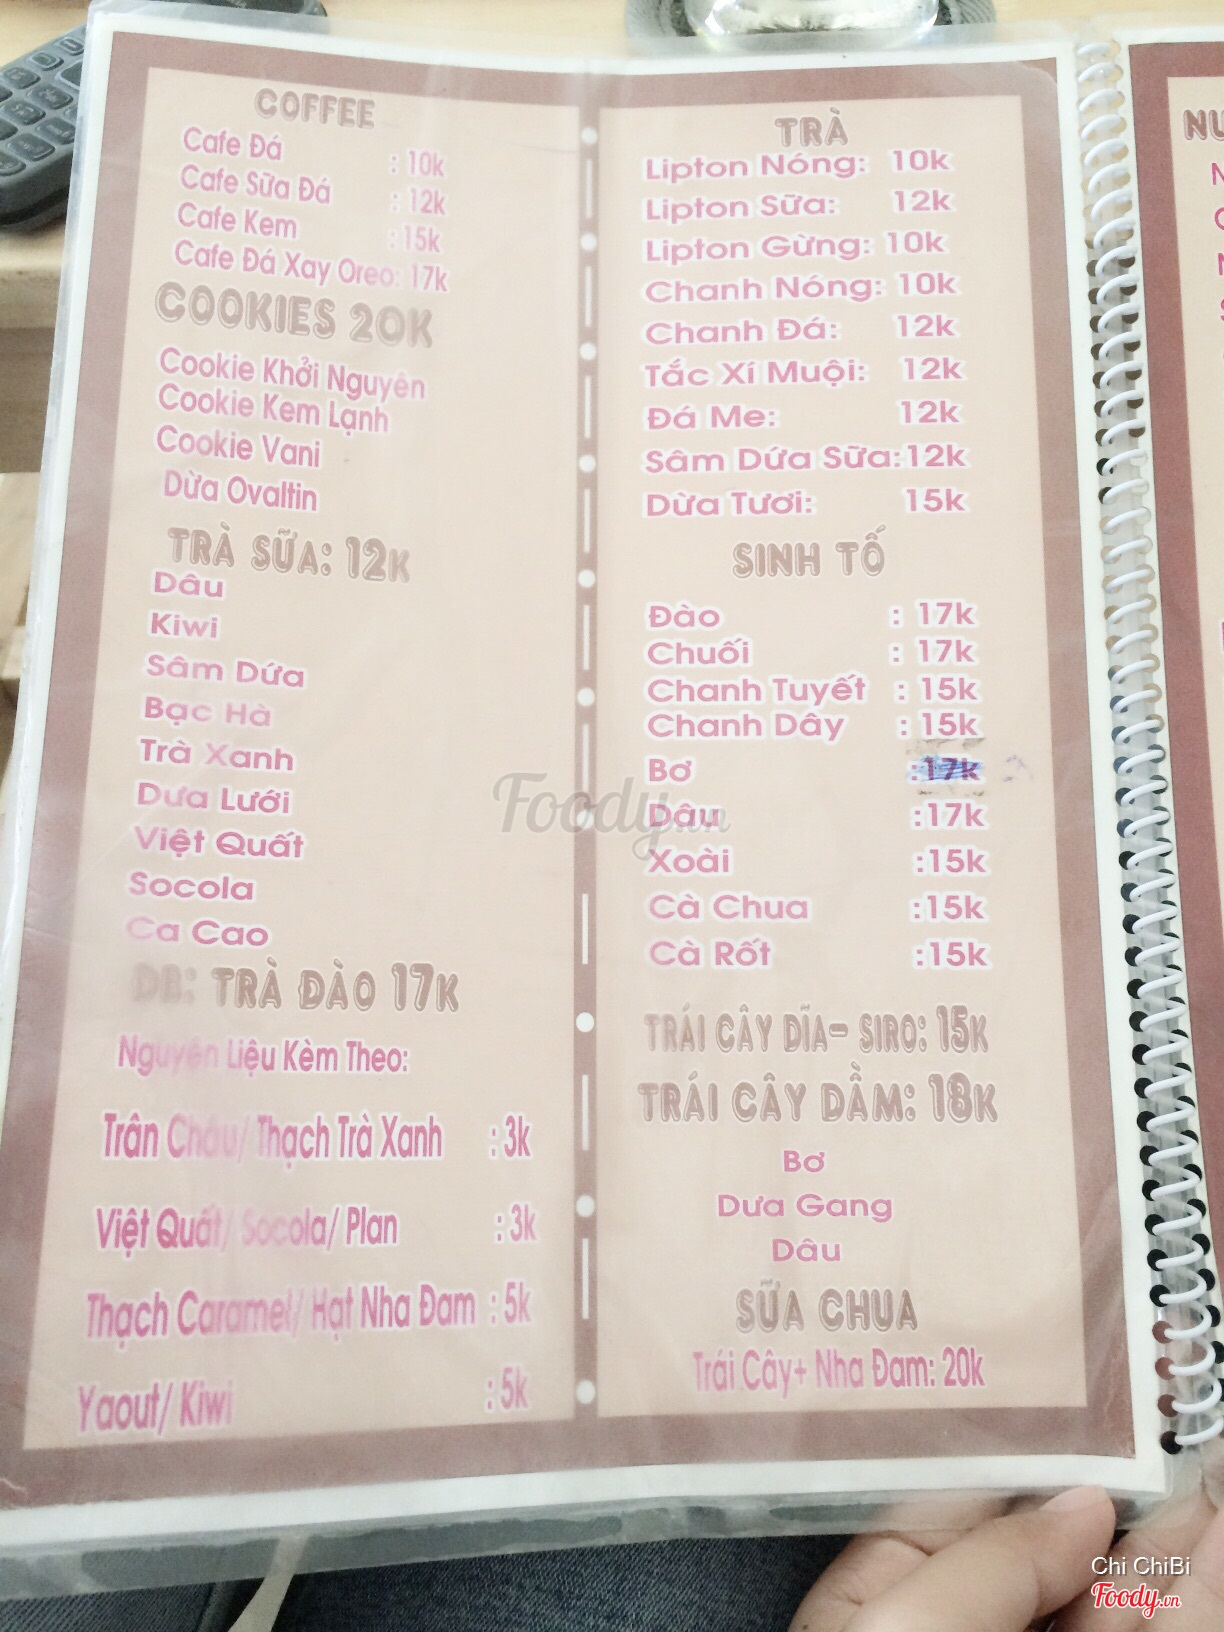 COFFEE
Cafe Đá : 10k
Cafe Sữa Đá : 12k
Cafe Kem : 15k
Cafe Đá Xay Oreo: 17k
COOKIES 20K
Cookie Khởi Nguyên
Cookie Kem Lạnh
Cookie Vani
Dừa Ovaltin
TRÀ SỮA: 12K
Dâu
Kiwi
Sâm Dứa
Bạc Hà
Trà Xanh
Dưa Lưới
Việt Quất
Socola
Ca Cao
ĐB: TRÀ ĐÀO 17K
Nguyên Liệu Kèm Theo:
Trân Cháu/ Thạch Trà Xanh : 3k
Việt Quất/ Socola/ Plan : 3k
Thạch Caramel/ Hạt Nha Đam : 5k
Yaout/ Kiwi : 5k
TRÀ
Lipton Nóng: 10k
Lipton Sữa: 12k
Lipton Gừng: 10k
Chanh Nóng: 10k
Chanh Đá: 12k
Tắc Xí Muội: 12k
Đá Me: 12k
Sâm Dứa Sữa: 12k
Dừa Tươi: 15k
SINH TỐ
Đào : 17k
Chuối : 17k
Chanh Tuyết : 15k
Chanh Dây : 15k
Bơ :17k
Dâu :17k
Xoài :15k
Cà Chua :15k
Cà Rốt :15k
TRÁI CÂY DĨA- SIRO: 15K
TRÁI CÂY DẦM: 18K
Bơ
Dưa Gang
Dâu
SỮA CHUA
Trái Cây+ Nha Đam: 20k
NƯ
Foody.vn
Chi ChiBi
Foody.vn